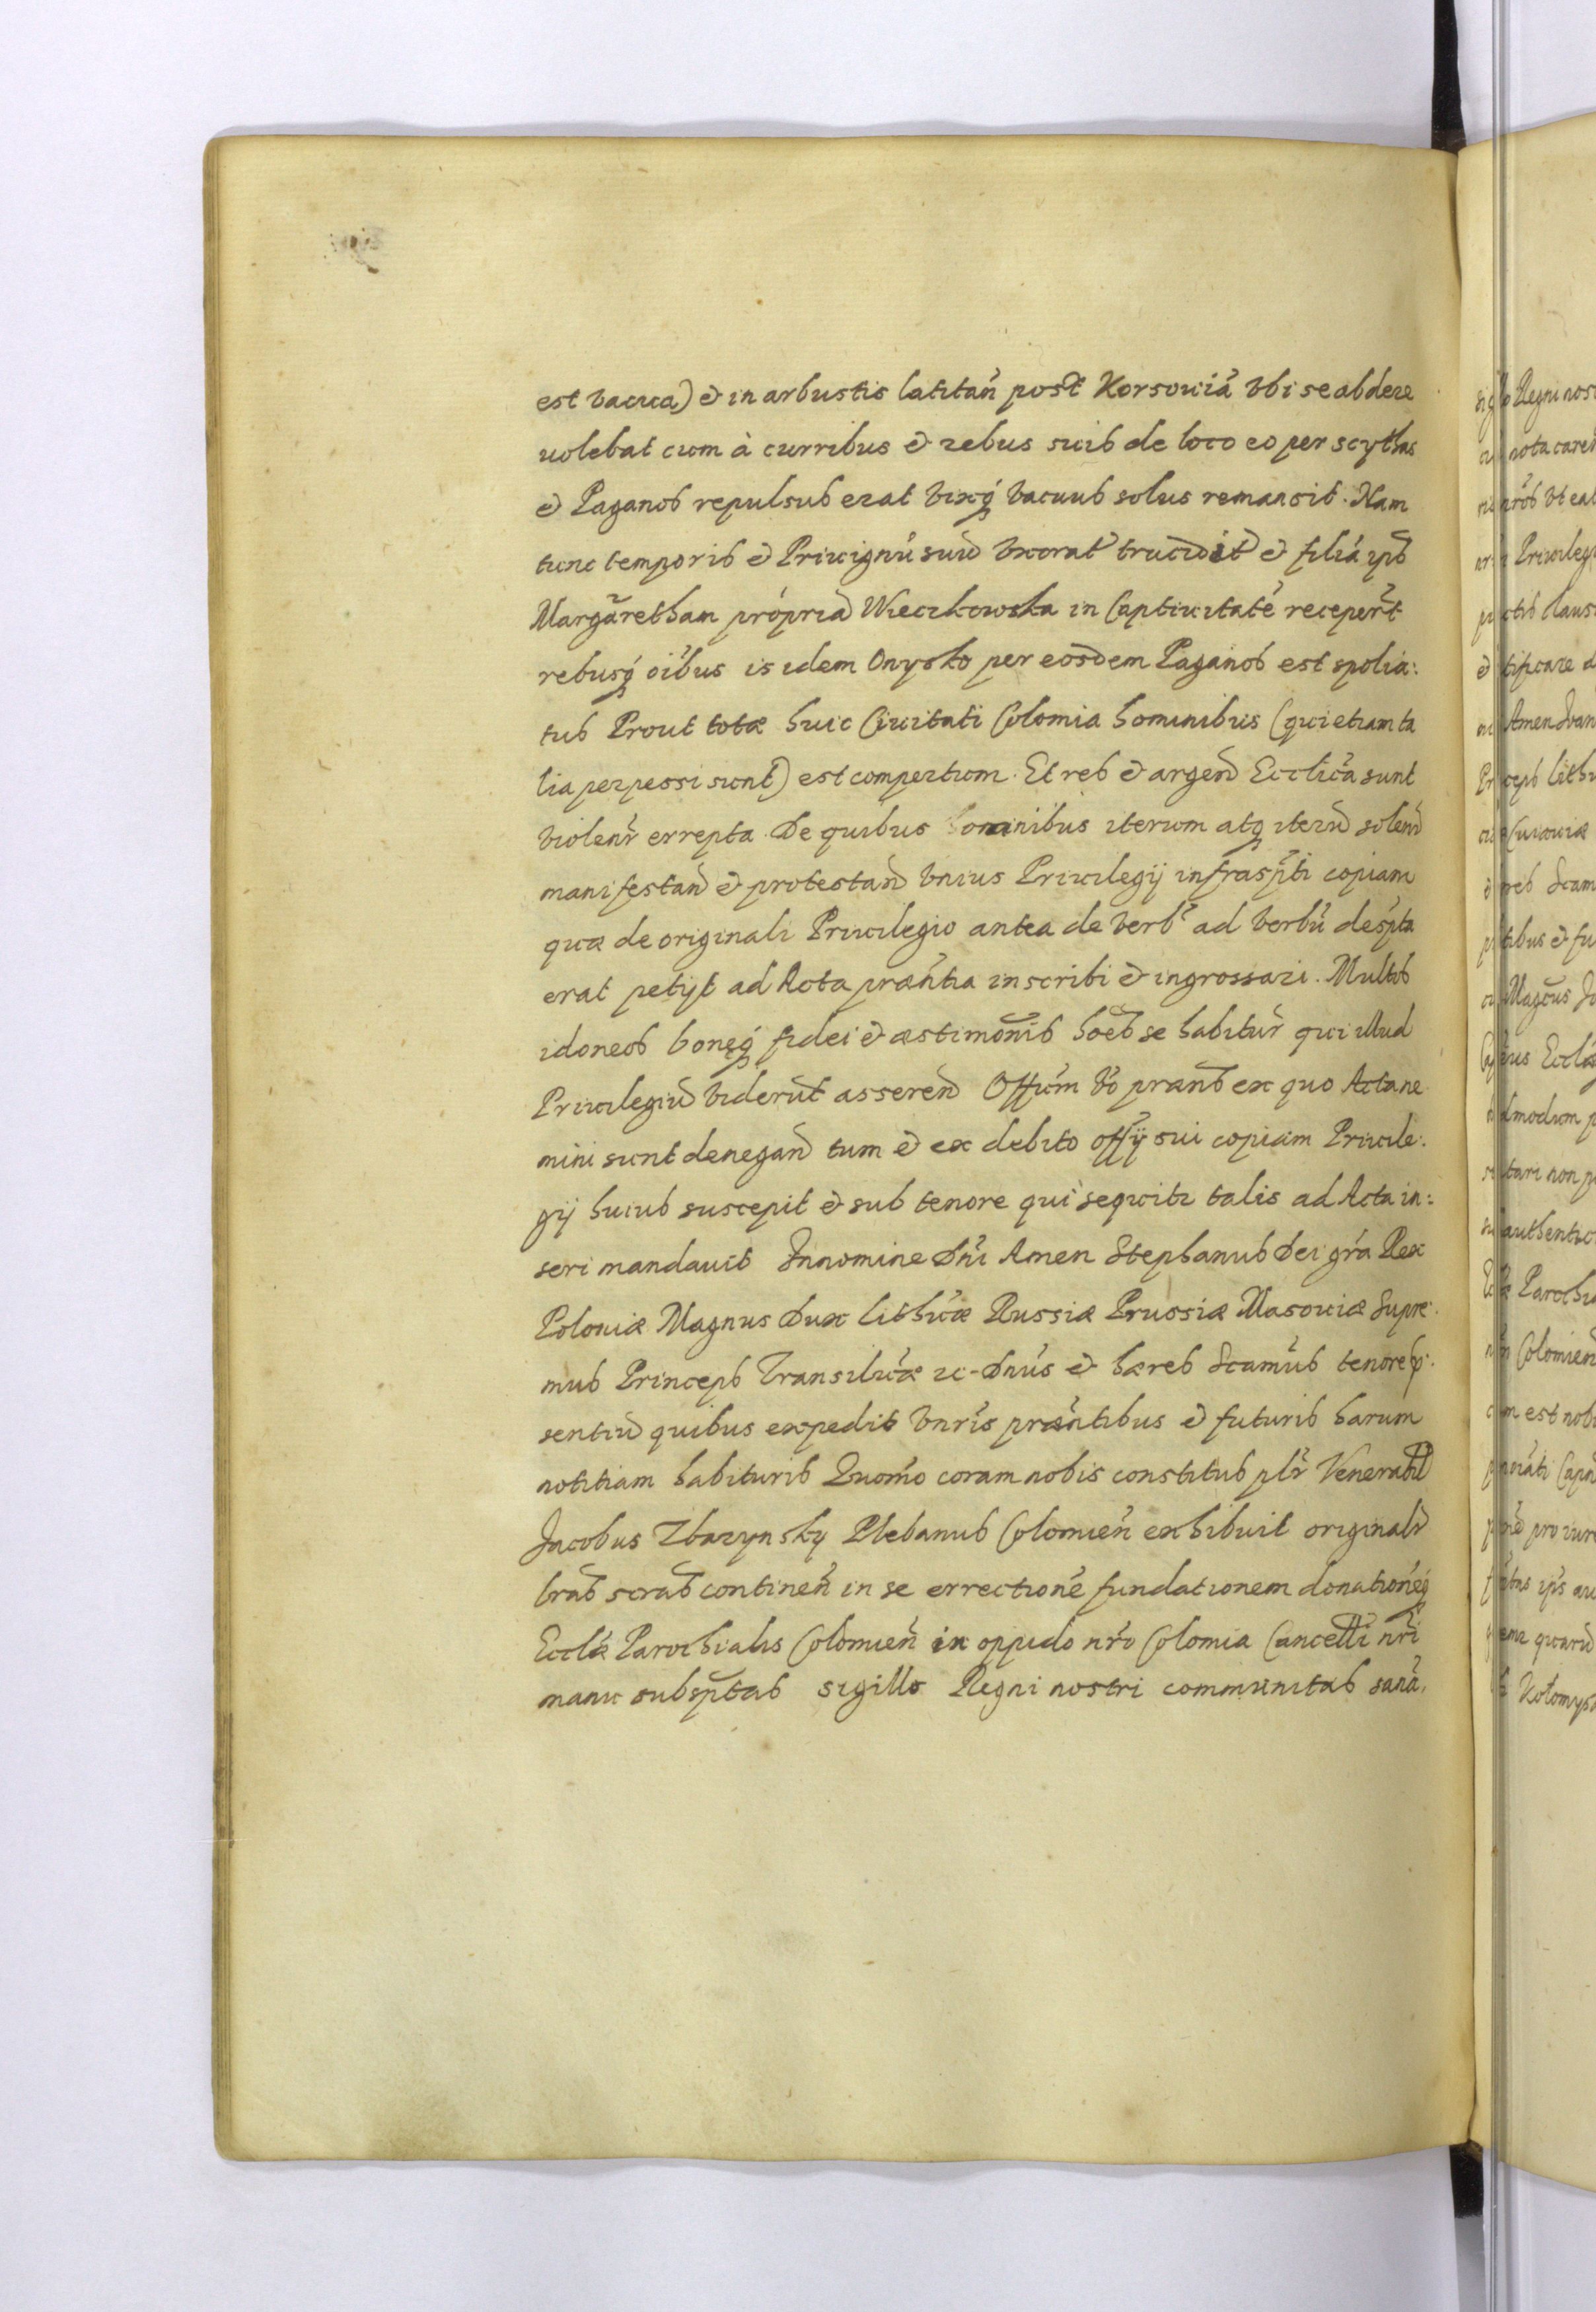 est vacua) & in arbustis latitan̄ post Korsouiā vbi se abdere
uolebat cum à curribus & rebus suis de loco eo per scythas
& Paganos repulsus erat vixq́ vacuus solus remansit. Nam
tunc temporis & Priuignū suū vxorat trucidit & filiā ips
Margaretham propriā Wieczkowska in Captiuitatē recepert
rebusq́ oībus is idem Onysko per eosdem Paganos est spolia:
tus Prout totæ huic Ciuitati Colomia hominibus (qui etiam ta
lia perpessi sunt) est compertum. Et res & argen̄ Ecclic̄a sunt
violenr̄ errepta. De quibus omnibus iterum atq́ iterū solen̄
manifestan̄ & protestan̄ vnius Priuilegij infrasp̄ti copiam
quæ de originali Priuilegio antea de verb̄ ad verbū desp̄ta
erat petijt ad Acta præn̄tia inscribi & ingrossari. Multos
idoneos bonęq́ fidei & æstimōnis hoēs se habitur̄ qui illud
Priuilegiū viderūt asseren̄ Offiūm vō præn̄s ex quo Acta ne
mini sunt denegan̄ tum & ex debito offij sui copiam Priuile:
gij huius suscepit & sub tenore qui sequitr talis ad Acta in:
seri mandauit In nomine Dn̄i Amen Stephanus Dei grā̄ Rex
Poloniæ Magnus Dux Lithūæ Russiæ Prussiæ Masouiæ Supre:
mus Princeps Transilūæ zc-Dnūs & hæres Scamūs tenore p̄:
sentiū quibus expedit vnr̄is præn̄tibus & futuris harum
notitiam habituris Quom̄o coram nobis constitus plr̄ Venerabl
Jacobus Zbarynsky Plebanus Colomien̄ exhibuit originalr̄
lrās scrās continen̄ in se errectionē fundationem donationēq́
Ecclæ Parochialis Colomien̄ in oppido nrō Colomia Cancelli nrī
manu subsp̄tas sigillo Regni nostri communitas sanā,